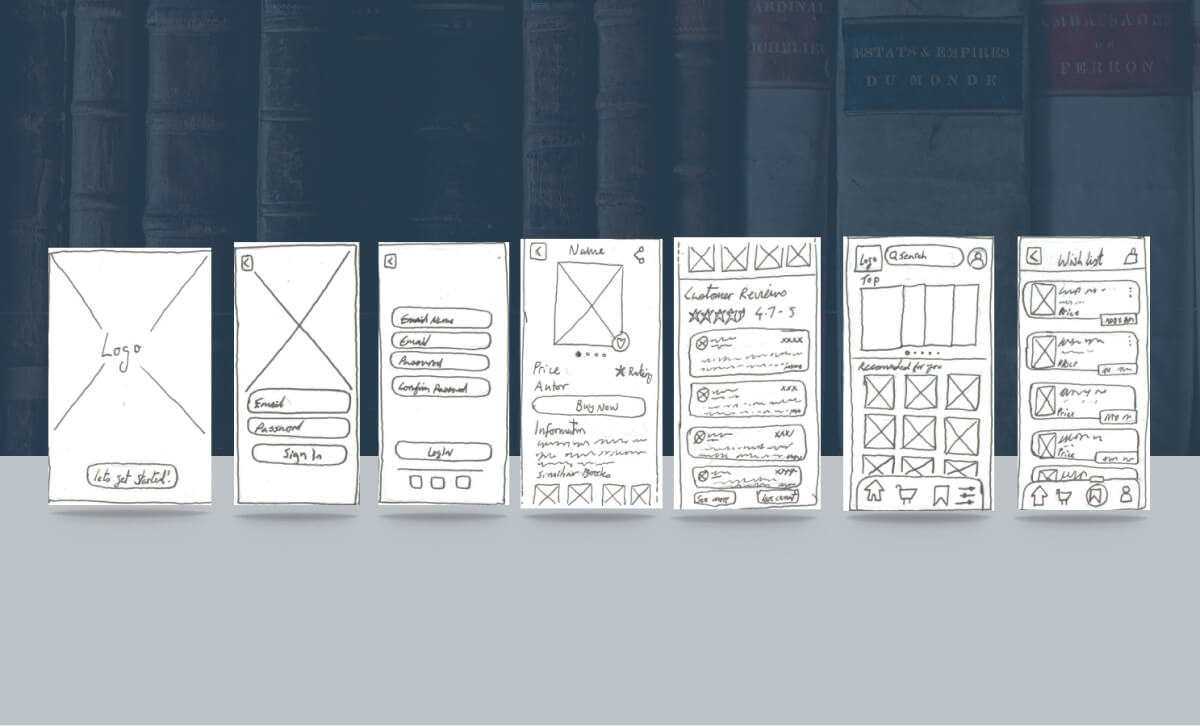 CARDINAL
ICHELIEU
ESTATS & EMPIRES
DU MONDE
AMBASSADES
DU
PERRON
Logo
lets get started!
<
Email
Password
Sign In
<
Email Name
Email
Password
Confirm Password
Login
<
Name
Price
Rating
Autor
Buy Now
Information
Similar Books
Customer Reviews
4.7 - 5
xxxx
xxx
See more
Logo
Search
Top
Recomended for you
<
Wish list
Price
Price
Price
Price